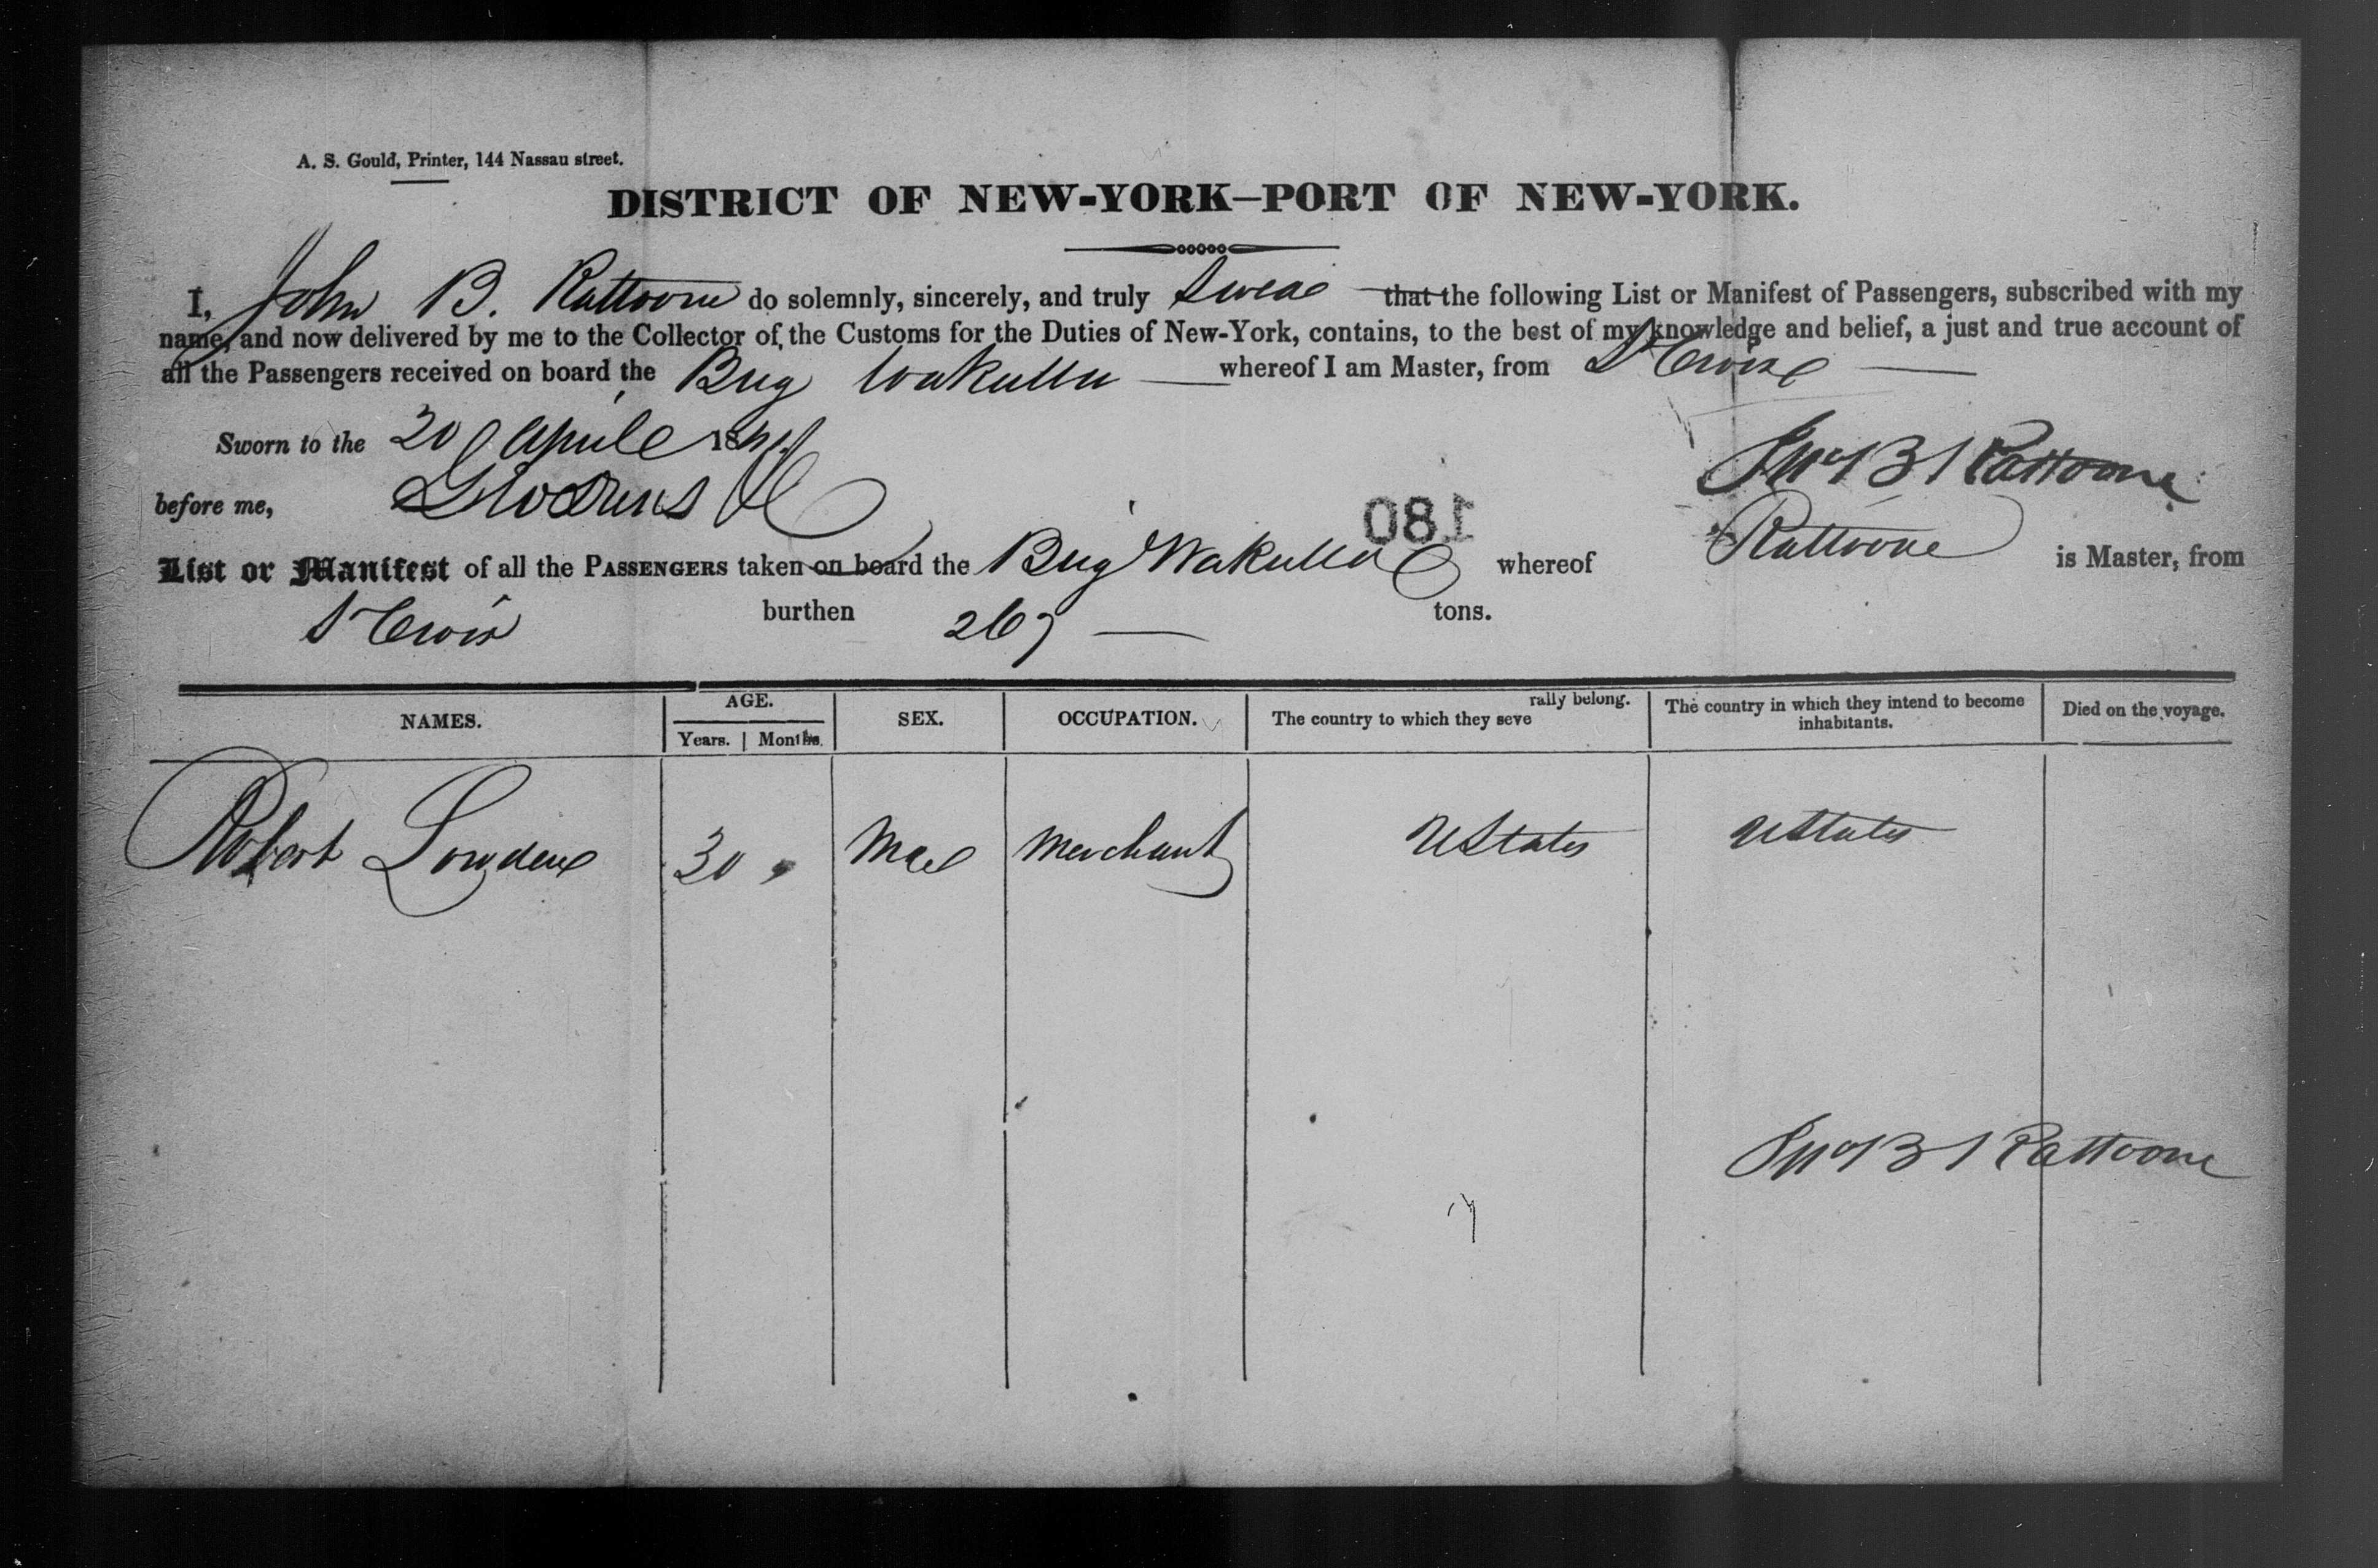 A. S. Gould, Printer, 144 Nassau street.
DISTRICT OF NEW-YORK—PORT OF NEW-YORK.
I, John B. Rattoone do solemnly, sincerely, and truly Swear that the following List or Manifest of Passengers, subscribed with my
name, and now delivered by me to the Collector of the Customs for the Duties of New-York, contains, to the best of my knowledge and belief, a just and true account of
all the Passengers received on board the Brig Wakulla whereof I am Master, from St Croix
Sworn to the 20 April 184
before me,
Jno B Rattoone
180
List or Manifest of all the PASSENGERS taken on board the Brig Wakulla whereof Rattoone is Master, from
St Croix burthen 267 tons.
NAMES. AGE. SEX. OCCUPATION. The country to which they seve rally belong. The country in which they intend to become inhabitants. Died on the voyage.
Years. Months.
Robert Lowdene 30 Mae Merchant UStates UStates
Jno B Rattoone